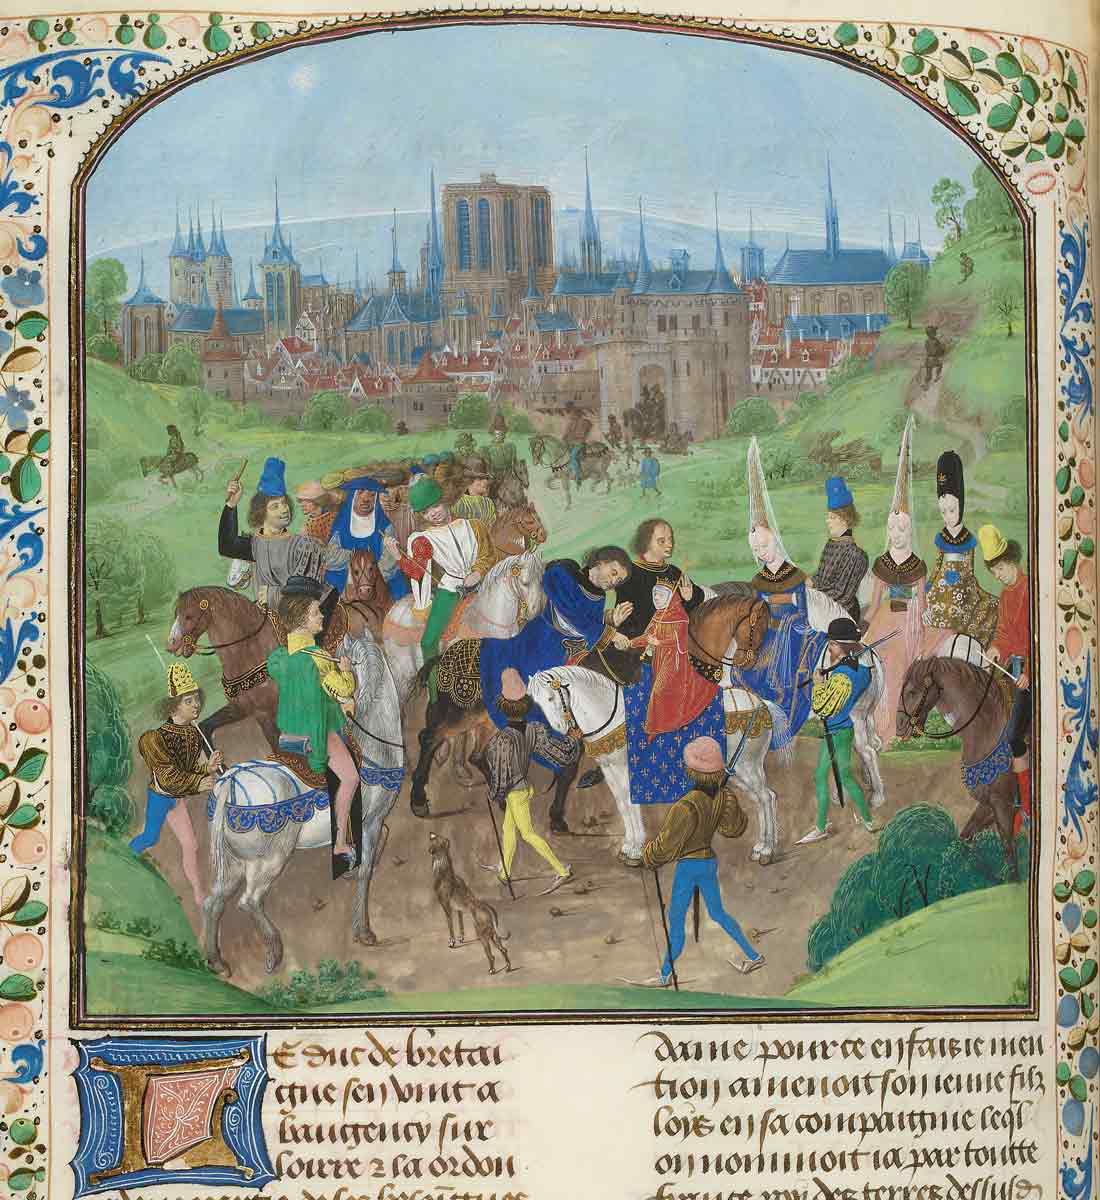 Le duc de bretai
gne sen vint a
baugency sur
loirre ⁊ la ordon
dame pour ce en fais ie men
tion amenoit son ienne filz
loys en sa compaignie leql
on nommoit ia par toutte